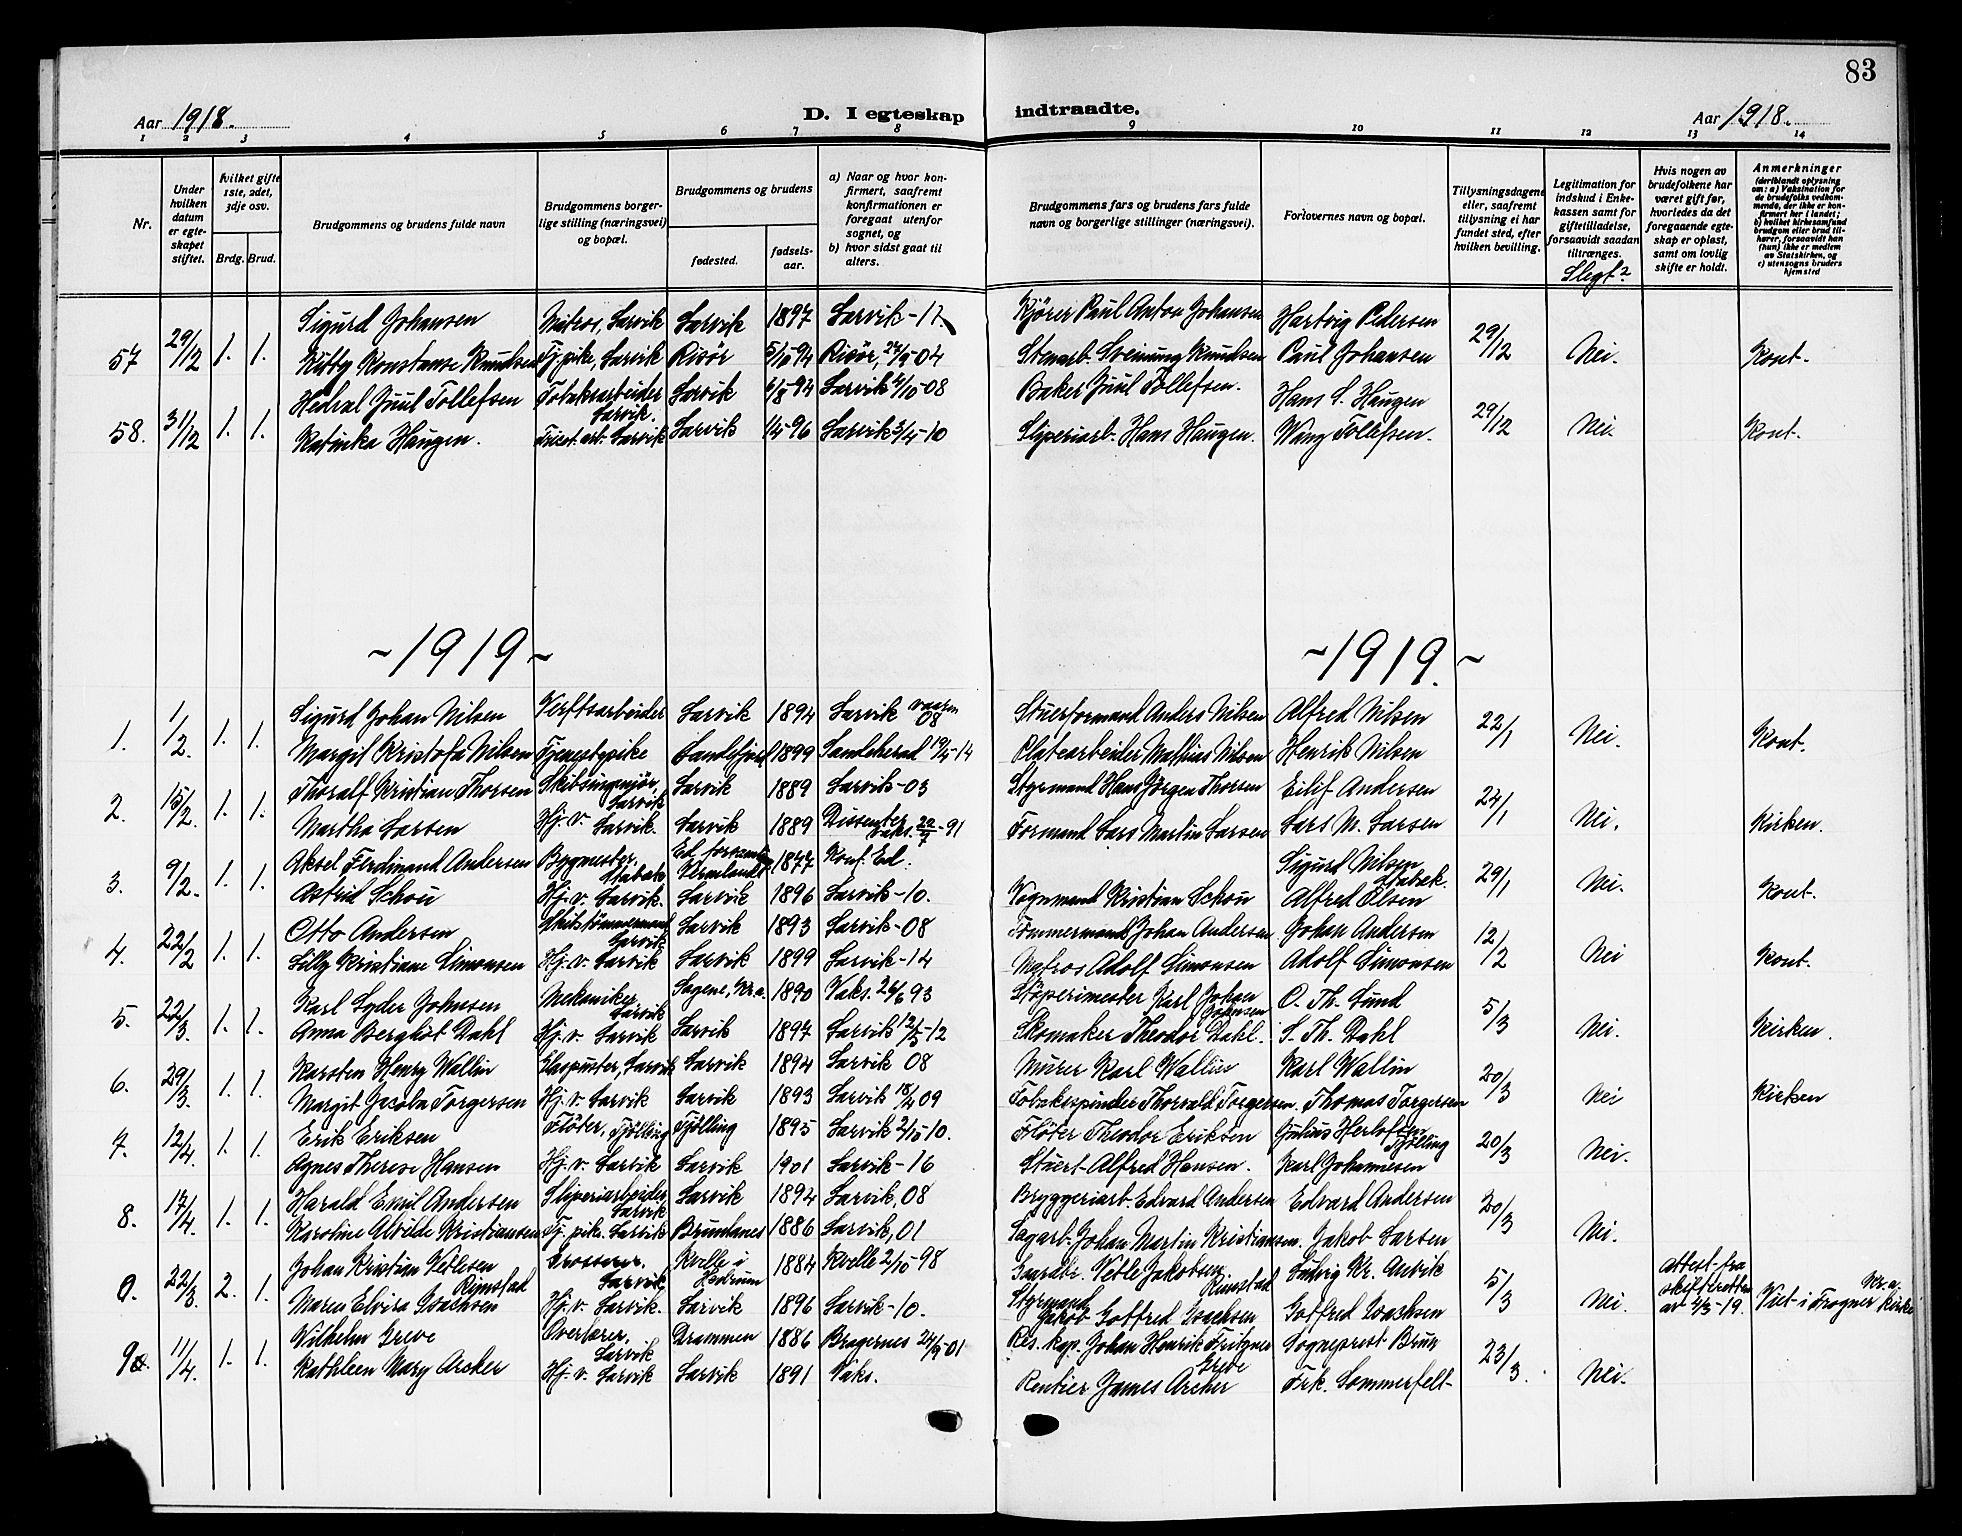 83
Aar 1918.
D. I egteskap indtraadte.
Aar 1918.
1 2 3 4 5 6 7 8 9 10 11 12 13 14
Nr.
Under hvilken datum er egteskapet stiftet.
hvilket gifte 1ste, 2det, 3dje osv.
Brdg. Brud.
Brudgommens og brudens fulde navn
Brudgommens borgerlige stilling (næringsvei) og bopæl.
Brudgommens og brudens
fødested.
fødselsaar.
a) Naar og hvor konfirmert, saafremt konfirmationen er foregaat utenfor sognet, og
b) hvor sidst gaat til alters.
Brudgommens fars og brudens fars fulde navn og borgerlige stillinger (næringsvei).
Forlovernes navn og bopæl.
Tillysningsdagene eller, saafremt tillysning ei har fundet sted, efter hvilken bevilling.
Legitimation for indskud i Enkekassen samt for giftetilladelse, forsaavidt saadan tiltrænges.
Slegt?
Hvis nogen av brudefolkene har været gift før, hvorledes da det foregaaende egteskap er opløst, samt om lovlig skifte er holdt.
Anmerkninger
(deriblandt oplysning om: a) Vaksination for de brudefolks vedkommende, der ikke er konfirmert her i landet; b) hvilket kirkesamfund brudgom eller brud tilhører, forsaavidt han (hun) ikke er medlem av Statskirken, og c) utensogns bruders hjemsted
57 29/12 1. 1. Sigurd Johansen Matros, Larvik Larvik 1897 Larvik - 12 Kjörer Paul Anton Johansen Hartvig Pedersen 29/12 Nei. Kont.
Kitty Konstanse Knudsen Tj. pike, Larvik Risör 5/10-94 Risör, 24/9-04 Stenarb. Sveinung Knudsen Paul Johansen
58. 31/12 1. 1. Juul Tollefsen Tobaksarbeider Larvik. Larvik 6/8-94 Larvik 4/10-08 Baker Juul Tollefsen. Hans L. Haugen 29/12 Nei. Kont.
Katinka Haugen. arb. Larvik Larvik 1/4-96 Larvik 3/4-10 Sliperiarb. Hans Haugen. Wang Tollefsen.
~1919~ ~1919.~
1. 1/2 1. 1. Sigurd Johan Nilsen Verftsarbeider Larvik 1894 Larvik vaaren 08 Stuerformand Anders Nilsen Alfred Nilsen 22/1 Nei. Kont.
Margit Kristofa Nilsen Tjenestepike Sandefjord 1899 Sandeherad 19/4-14 Platearbeider Mathias Nilsen Henrik Nilsen
2. 15/2. 1. 1. Thoralf Kristian Thorsen Skibsingeniör, Larvik Larvik 1889 Larvik - 03 Styrmand Hans Jörgen Thorsen Eilif Andersen 24/1 Nei. Kirken.
Martha Larsen Hj. v. Larvik. Larvik 1889 Dissenter Vaks. 22/7-91 Formand Lars Martin Larsen Lars M. Larsen
3. 9/2. 1. 1. Aksel Ferdinand Andersen Bygmester, Stabæk Ed 1877 Konf. Ed. Sigurd Nilsen Stabæk. 29/1 Nei. Kont.
Astrid Schou Hj. v. Larvik. Larvik 1896 Larvik - 10. Vognmand Kristian Schou Alfred Olsen
4. 22/2 1. 1. Otto Andersen Skibstömmermand Larvik Larvik 1893 Larvik - 08 Tömmermand Johan Andersen Johan Andersen 12/2 Nei Kont.
Lilly Kristiane Simonsen Hj. v. Larvik Larvik 1899 Larvik - 14 Matros Adolf Simonsen Adolf Simonsen
5. 22/3. 1. 1. Karl Lyder Johnsen Mekaniker Larvik Sagene, Kr.a. 1890 Vaks. 26/6 93 Stöperimester Karl Johan Johnsen O. Th. Lund 5/3 Nei. Kirken.
Anna Bergliot Dahl Hj. v. Larvik Larvik 1897 Larvik 12/5-12 Skomaker Theodor Dahl. S. Th. Dahl
6. 29/3. 1. 1. Karsten Henry Wallin Glaspuster, Larvik Larvik 1894 Larvik 08 Murer Karl Wallin Karl Wallin 20/3 Nei Kirken
Margit Jacoba Torgersen Hj. v. Larvik Larvik 1893 Larvik 18/4 09 Tobakspinder Thorvald Torgersen. Thomas Torgersen
7. 12/4. 1. 1. Erik Eriksen Flöter, Tjölling Tjölling 1895 Larvik 2/10-10. Flöter Theodor Eriksen Julius Herlofsen Tjölling 20/3 Nei.
Agnes Therese Hansen Hj. v. Larvik Larvik 1901 Larvik - 16 Stuert - Alfred Hansen. Karl Johannesen
8. 17/4. 1. 1. Harald Emil Andersen Sliperiarbeider Larvik Larvik 1894 Larvik, 08 Bryggeriarb. Edvard Andersen Edvard Andersen 20/3 Nei.
Karoline Alvilde Kristiansen Tj. pike. Larvik Brunlanes 1886 Larvik, 01 Sagarb. Johan Martin Kristiansen. Jakob Larsen
9. 22/3. 2. 1. Johan Kristian Vetlesen Rimstad Grosserer. Larvik Kvelle i Hedrum 1884 Kvelle 2/10-98 Gaardbr. Vetle Jakobsen Rimstad Ludvig Kr. Anvik 5/3 Nei. Attest fra skifteretten av 4/3-19. Viet i Frogner kirke Kr.a.
Maren Elvira Isachsen Hj. v. Larvik. Larvik 1896 Larvik - 10. Styrmand Jakob Gotfred Isachsen Gotfred Isachsen
9a. 11/4. 1. 1. Wilhelm Greve Overlærer. Larvik Drammen 1886 Bragernes 24/9 01 Res. kap. Johan Henrik Fritzner Greve Sogneprest Bruun 23/3. Nei.
Kathleen Mary Archer Hj. v. Larvik Larvik 1891 Vaks. Rentier James Archer Frk. Sommerfelt